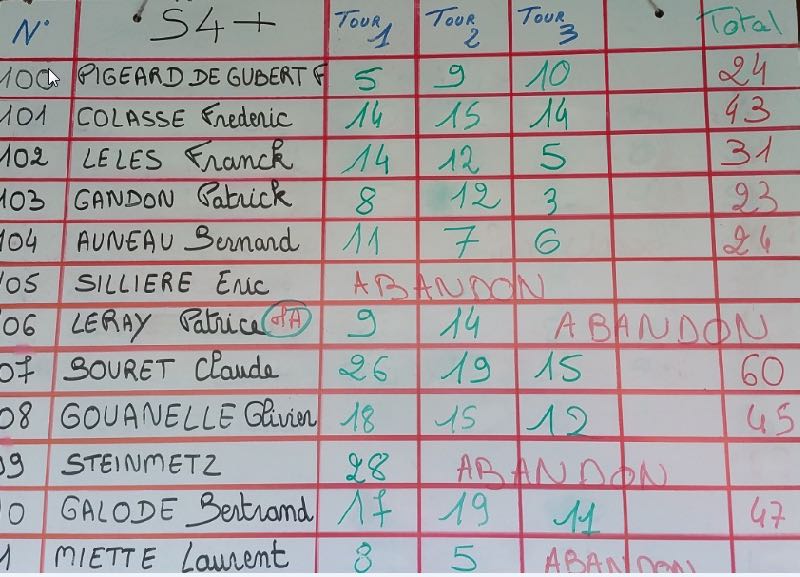 N° S4+ TOUR 1 TOUR 2 TOUR 3 Total
100 PIGEARD DE GUBERT F 5 9 10 24
101 COLASSE Frederic 14 15 14 43
102 LELES Franck 14 12 5 31
103 GANDON Patrick 8 12 3 23
104 AUNEAU Bernard 11 7 6 24
105 SILLIERE Eric ABANDON
06 LERAY Patrice 9 14 ABANDON
07 BOURET Claude 26 19 15 60
08 GOUANELLE Olivier 18 15 12 45
09 STEINMETZ 28 ABANDON
0 GALODE Bertrand 17 19 11 47
1 MIETTE Laurent 8 5 ABANDON